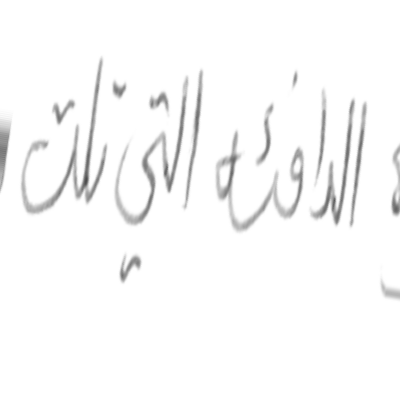 الدافئة التي تلت